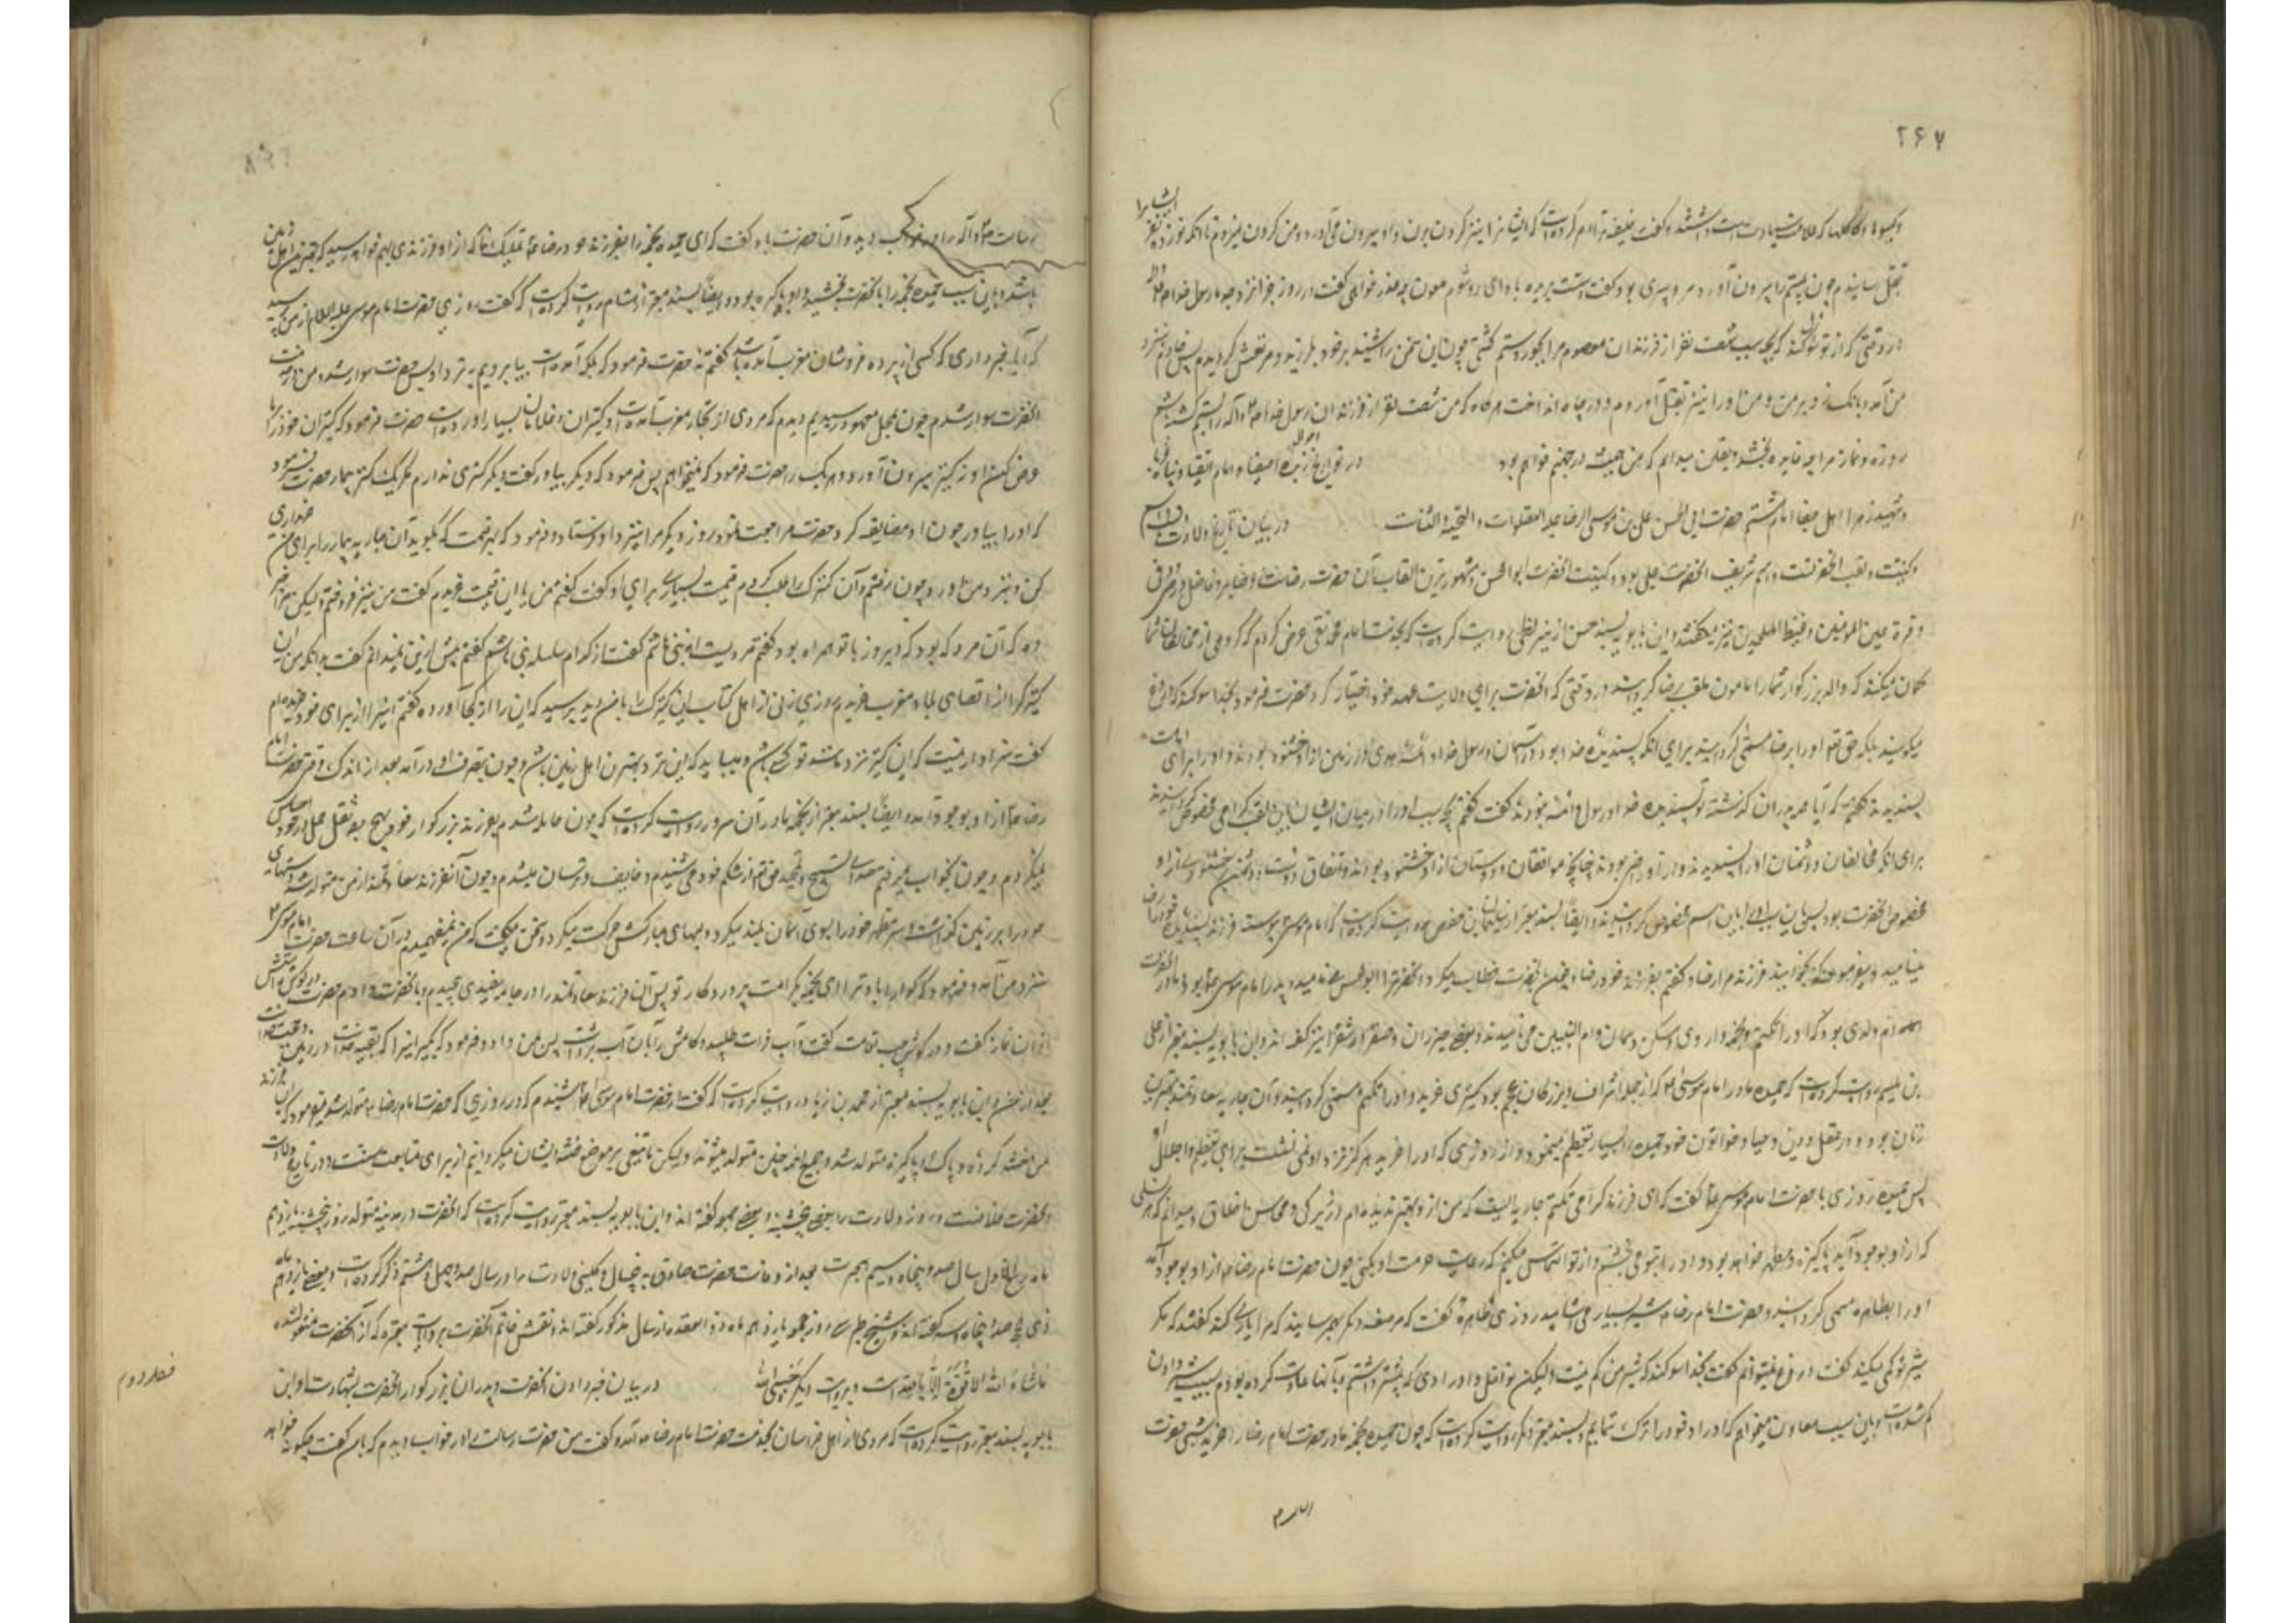 ۲۶۷
و گیسوها و کاکلها که علامت سیادتست داشتند و گفت خلیفه ترا امر کرده است که ایشانرا نیز گردن بزن و او بیرون می‌آورد و من گردن میزدم تا آنکه نوزده نفر ایشانرا
بقتل رسانیدم چون بیستم را بیرون آورد مرد پیری بود گفت دستت بریده باد ای میشوم ملعون چه عذر خواهی گفت در روز جزا نزد جد ما رسول خدا
در وقتی که از تو سؤال کند که بچه سبب شصت نفر از فرزندان معصوم مرا بجور و ستم کشتی چون این سخن را شنیدم بر خود بلرزیدم و مرتعش گردیدم پس خادم نزد
من آمد و بانگ زد بر من و من او را نیز بقتل آوردم و در چاه انداخت هرگاه که من شصت نفر از فرزندان رسول خدا را بستم کشته باشم
روزه و نماز مرا چه فایده بخشد و یقین میدانم که من همیشه در جهنم خواهم بود در تواریخ احوال
و شهید زهر اهل جفا امام هشتم حضرت ابی الحسن علی بن موسی الرضا علیه الصلوات و التحیة و الثناست در بیان تاریخ ولادت
و کنیت و لقب آنحضرتست اسم شریف آنحضرت علی بود و کنیت آنحضرت ابو الحسن و مشهورترین القاب آن حضرت رضاست و صابر و فاضل و رضی و وفی
و قرة عین المؤمنین و غیظ الملحدین نیز میگفتند و ابن بابویه بسند حسن از بزنطی روایت کرده است که بخدمت امام محمد تقی عرض کردم که گروهی از مخالفان شما
گمان میکنند که والد بزرگوار شما را مامون ملقب برضا گردانید در وقتی که آنحضرت برای ولایت عهد خود اختیار کرد حضرت فرمود بخدا سوگند که دروغ
میگویند بلکه حق تعالی او را برضا مسمی گردانید برای آنکه پسندیده خدا بود در آسمان و رسول خدا و ائمه هدی در زمین از او خشنود بودند و او را برای امامت
پسندیدند گفتم که آیا همه پدران گذشته تو پسندیده خدا و رسول و ائمه نبودند گفت بلی گفتم بچه سبب او را در میان ایشان باین لقب گرامی مخصوص گردانیدند
برای آنکه مخالفان و دشمنان او را پسندیدند و از او راضی بودند چنانچه موافقان و دوستان از او خشنود بودند و اتفاق دوست و دشمن بر خشنودی از او
مخصوص آنحضرت بود پس باین سبب او را باین اسم مخصوص گردانیدند و ایضا بسند معتبر از سلیمان بن حفص روایت کرده است که امام موسی پیوسته فرزند پسندیده خود را رضا
مینامید و میفرمود که بخوانید فرزندم رضا و گفتم بفرزند خود رضا و چون با آنحضرت خطاب میکرد آنحضرت را ابو الحسن مینامید پدر امام موسی بود و مادر آنحضرت
ام ولدی بود که او را تکتم و نجمه و اروی و سکن و سمان و ام البنین می‌نامیدند و بعضی خیزران و صقر و شقرا نیز گفته‌اند و ابن بابویه بسند معتبر از علی
بن میثم روایت کرده است که حمیده مادر امام موسی که از جمله اشراف و بزرگان عجم بود کنیزی خرید و او را تکتم مسمی گردانید و آن جاریه سعادتمند بهترین
زنان بود در عقل و دین و حیا و خواتون خود حمیده را بسیار تعظیم مینمود و از روزی که او را خرید هرگز نزد او نمی‌نشست برای تعظیم و اجلال او
پس حمیده روزی با حضرت امام موسی گفت که ای فرزند گرامی تکتم جاریه‌ایست که من از او بهتر ندیده‌ام در زیرکی و محاسن اخلاق و میدانم که هر نسلی
که از او بوجود آید پاکیزه و مطهر خواهد بود و او را بتو می‌بخشم و از تو التماس میکنم که رعایت حرمت او بکنی چون حضرت امام رضا از او بوجود آمد
او را بطاهره مسمی گردانید و حضرت امام رضا شیر بسیار می‌آشامید روزی طاهره گفت که مرضعه دیگر بهم رسانید که مرا یاری کند گفتند که مگر
شیر تو کمی میکند گفت دروغ نمیتوانم گفت بخدا سوگند که شیر من کم نیست ولیکن نوافل و اورادی که پیشتر داشتم و بآنها عادت کرده بودم بسبب شیر دادن
کم شده است و باین سبب معاون میخواهم که اوراد خود را ترک ننمایم و بسند معتبر دیگر روایت کرده است که چون حمیده نجمه مادر حضرت امام رضا را خرید شبی حضرت
رسالت را در خواب دید و آن حضرت با او گفت که ای حمیده نجمه را بفرزند خود تملیک نما که از او فرزندی بهم خواهد رسید که بهترین اهل زمین
باشد و باین سبب حمیده نجمه را با آنحضرت بخشید و او باکره بود و ایضا بسند معتبر از هشام روایت کرده است که گفت روزی حضرت امام موسی علیه السلام از من پرسید
که آیا خبر داری که کسی از برده فروشان مغرب آمده باشد گفتم نه حضرت فرمود که بلکه آمده است بیا برویم بنزد او پس حضرت سوار شد و من در خدمت
آنحضرت سوار شدم چون بمحل معهود رسیدیم دیدیم که مردی از تجار مغرب آمده است و کنیزان و غلامان بسیار آورده است حضرت فرمود که کنیزان خود را بما
عرض کن او نه کنیز بیرون آورد و هر یک را حضرت فرمود که نمیخواهم پس فرمود که دیگر بیاور گفت دیگر کنیزی ندارم مگر یک کنیز بیمار حضرت فرمود
که او را بیاور چون او مضایقه کرد حضرت مراجعت نمود و روز دیگر مرا بنزد او فرستاد و فرمود که بهر قیمت که بگوید آن جاریه بیمار را برای من خریداری
کن و بنزد من آور چون رفتم و آن کنیزک را طلب کردم قیمت بسیاری برای او گفت گفتم من باین قیمت خریدم گفت من نیز فروختم ولیکن مرا خبر
ده که آن مرد که بود که دیروز با تو همراه بود گفتم مردیست از بنی هاشم گفت از کدام سلسله بنی هاشم گفتم بیش از این نمیدانم گفت بدانکه من این
کنیزک را از اقصای بلاد مغرب خریدم روزی زنی از اهل کتاب این کنیزک را با من دید پرسید که این را از کجا آورده گفتم اینرا از برای خود خریده‌ام
گفت سزاوار نیست که این کنیز نزد مانند تو کسی باشد و میباید که این نزد بهترین اهل زمین باشد و چون بتصرف او درآمد بعد از اندک وقتی حضرت امام
رضا از او بوجود آمد و ایضا بسند معتبر از نجمه مادر آن سرور روایت کرده است که چون حامله شدم بفرزند بزرگوار خود بهیچ وجه ثقل حمل در خود احساس
نمیکردم و چون بخواب میرفتم صدای تسبیح و تمجید حق تعالی از شکم خود می‌شنیدم و خایف و ترسان میشدم و چون آن فرزند سعادتمند از من متولد شد دستهای
خود را بر زمین گذاشت و سر مطهر خود را بسوی آسمان بلند میکرد و لبهای مبارکش حرکت میکرد و سخنی میگفت که من نمیفهمیدم در آن ساعت حضرت امام موسی
بنزد من آمد و فرمود که گوارا باد ترا ای نجمه کرامت پروردگار تو پس آن فرزند سعادتمند را در جامه سفیدی پیچیدم و بآنحضرت دادم حضرت در گوش راستش
اذان نماز گفت و در گوش چپ اقامت گفت و آب فرات طلبید و کامش را بآن آب برداشت پس بمن داد و فرمود که بگیر اینرا که بقیه خداست در زمین و حجت خداست
بعد از من و ابن بابویه بسند معتبر از محمد بن زیاد روایت کرده است که گفت از حضرت امام موسی شنیدم که در روزی که حضرت امام رضا متولد شد میفرمود که این فرزند
من ختنه کرده و پاک و پاکیزه متولد شد و جمیع ائمه چنین متولد میشوند ولیکن ما تیغی بر موضع ختنه ایشان میگردانیم از برای متابعت سنت و در تاریخ ولادت
آنحضرت خلافست روز ولادت را بعضی پنجشنبه و بعضی جمعه گفته‌اند و ابن بابویه بسند معتبر روایت کرده است که آنحضرت در مدینه متولد شد روز پنجشنبه یازدهم
ماه ربیع الاول سال صد و پنجاه و سیم هجرت بعد از وفات حضرت صادق به پنج سال و کلینی ولادت را در سال صد و چهل و هشتم ذکر کرده است و بعضی یازدهم ماه
ذی حجه صد و پنجاه و سه گفته‌اند و شیخ طبرسی روز جمعه یازدهم ماه ذوالقعده از سال مذکور گفته‌اند و نقش خاتم آنحضرت بروایات معتبره که از آنحضرت منقولست
ما شاء الله لا قوة الا بالله است و بروایت دیگر حسبی الله در بیان خبر دادن آنحضرت و پدران بزرگوار آنحضرت بشهادت او ابن
فصل دوم
بابویه بسند معتبر روایت کرده است که مردی از اهل خراسان بخدمت حضرت امام رضا آمد و گفت من حضرت رسالت را در خواب دیدم که بمن گفت چگونه خواهد